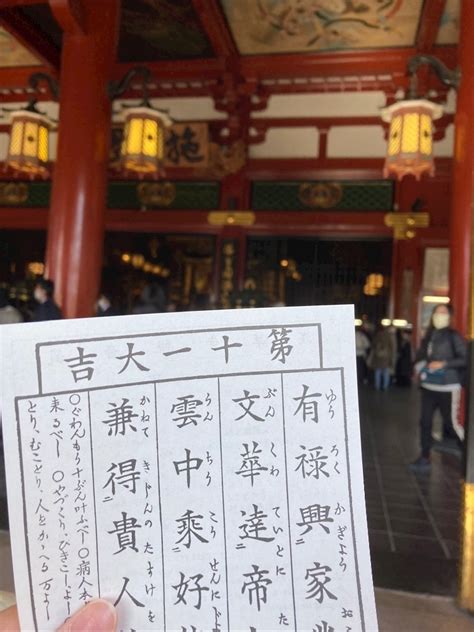 第十一大吉
有禄興家
ゆう ろく かぎよう
文華達帝
ぶん くわ ていとに
雲中乗好
うん ちう こう
兼得貴人
かねて きじんの たすけを
○ぐわんもう十ぶん叶ふべし○病人本
来るべし ○やづくり、ひきこしよ
とり、むことり、人をかゝへる万よし
施